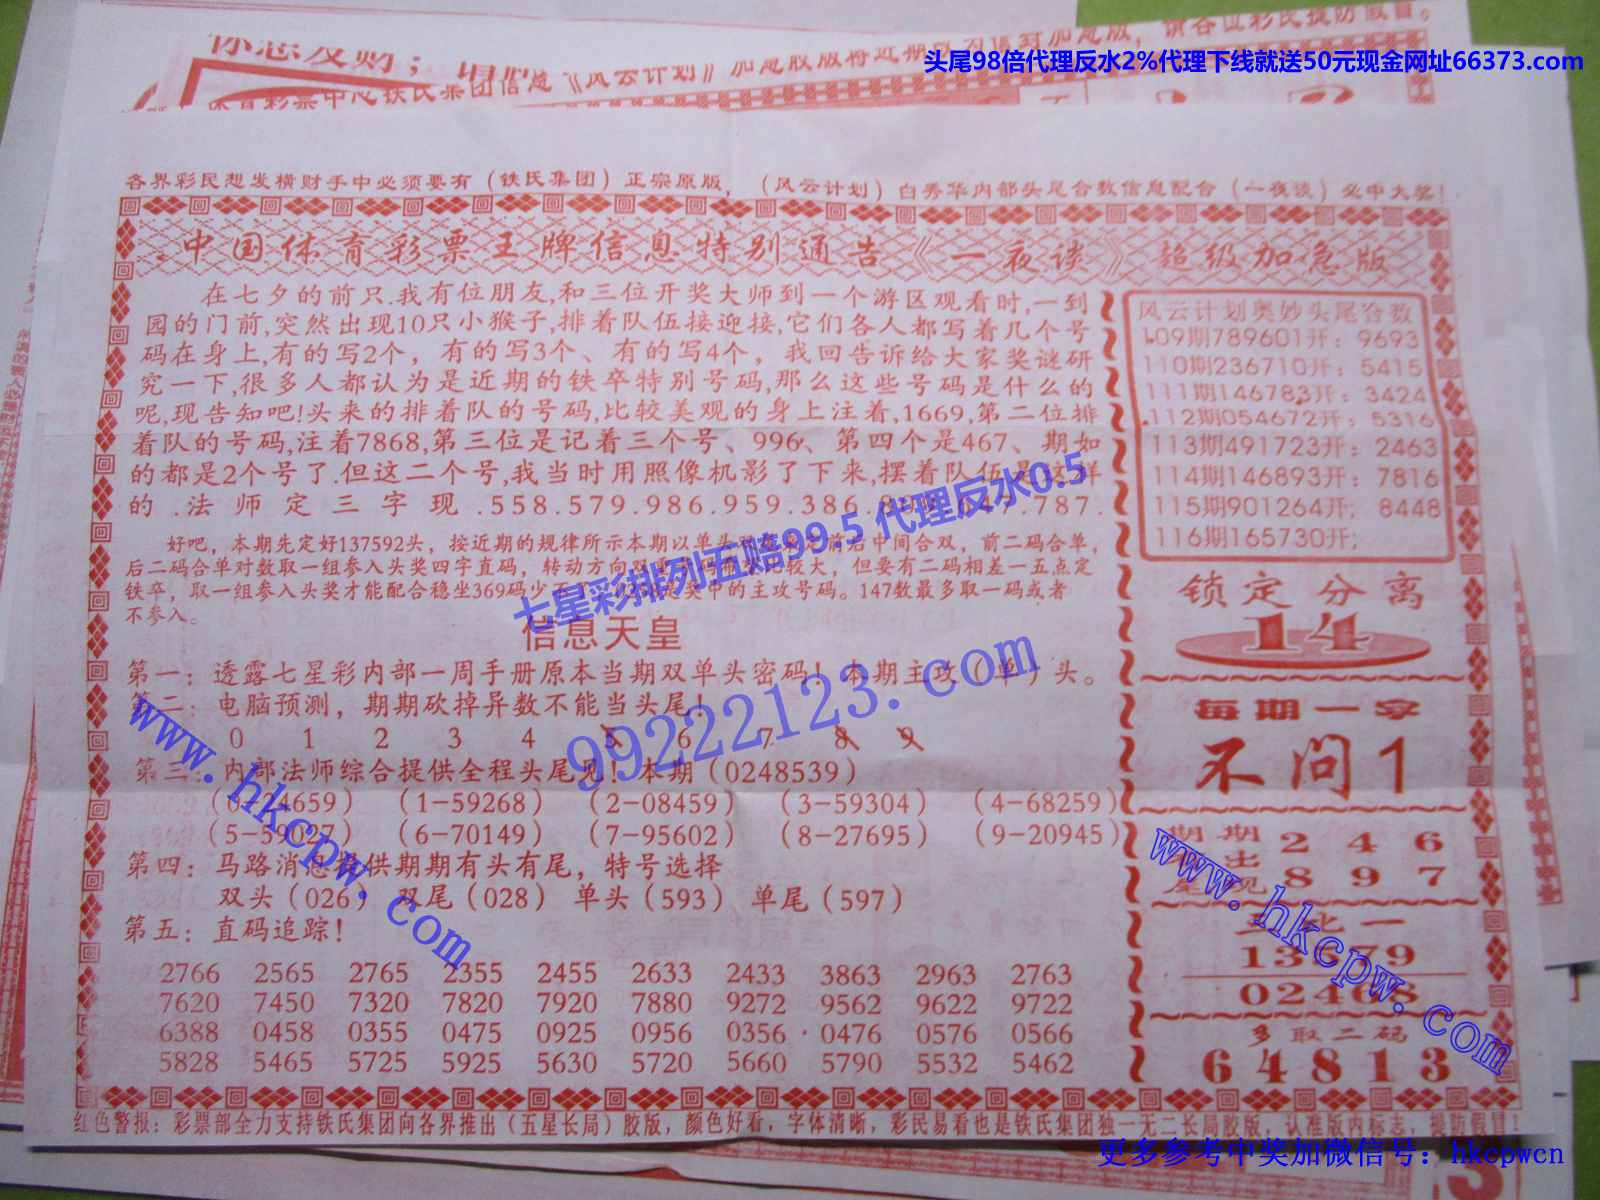 头尾98倍代理反水2%代理下线就送50元现金网址66373.com
各界彩民想发横财手中必须要有(铁氏集团)正宗原版,(风云计划)白秀华内部头尾合数信息配合(一夜谈)必中大奖!
中国体育彩票王牌信息特别通告《一夜谈》超级加急版
在七夕的前只.我有位朋友,和三位开奖大师到一个游区观看时,一到
园的门前,突然出现10只小猴子,排着队伍接迎接,它们各人都写着几个号
码在身上,有的写2个,有的写3个、有的写4个,我回告诉给大家奖谜研
究一下,很多人都认为是近期的铁卒特别号码,那么这些号码是什么的
呢,现告知吧!头来的排着队的号码,比较美观的身上注着,1669,第二位排
着队的号码,注着7868,第三位是记着三个号、996、第四个是467、期如
的都是2个号了.但这二个号,我当时用照像机影了下来,摆着队伍是这样
的.法师定三字现.558.579.986.959.386. 787.
好吧,本期先定好137592头,按近期的规律所示本期以单头 前后中间合双,前二码合单,
后二码合单对数取一组参入头奖四字直码,转动方向 比较大,但要有二码相差一五点定
铁卒,取一组参入头奖才能配合稳坐369码少不 奖中的主攻号码。147数最多取一码或者
不参入。
七星彩排列五赔99.5 代理反水0.5
信息天皇
99222123.com
第一:透露七星彩内部一周手册原本当期双单头密码!本期主攻(单)头。
第二:电脑预测,期期砍掉异数不能当头尾!
0 1 2 3 4 5 6 7 8 9
第三:内部法师综合提供全程头尾见!本期(0248539)
(1-59268) (2-08459) (3-59304) (4-68259)
(6-70149) (7-95602) (8-27695) (9-20945)
第四:马路消息提供期期有头有尾,特号选择
双头(026) 双尾(028) 单头(593) 单尾(597)
第五:直码追踪!
2766 2565 2765 2355 2455 2633 2433 3863 2963 2763
7620 7450 7320 7820 7920 7880 9272 9562 9622 9722
6388 0458 0355 0475 0925 0956 0356 0476 0576 0566
5828 5465 5725 5925 5630 5720 5660 5790 5532 5462
www.hkcpw.com
风云计划奥妙头尾合数
109期789601开:9693
110期236710开:5415
111期146783开:3424
112期054672开:5316
113期491723开:2463
114期146893开:7816
115期901264开;8448
116期165730开;
锁定分离
14
每期一字
不问1
期期 2 4 6
出 现 8 9 7
比一
13579
02468
多取二码
64813
www.hkcpw.com
红色警报:彩票部全力支持铁氏集团向各界推出(五星长局)胶版,颜色好看,字体清晰,彩民易看也是铁氏集团独一无二长局胶版,认准版内标志,提防假冒!
更多参考中奖加微信号:hkcpwcn